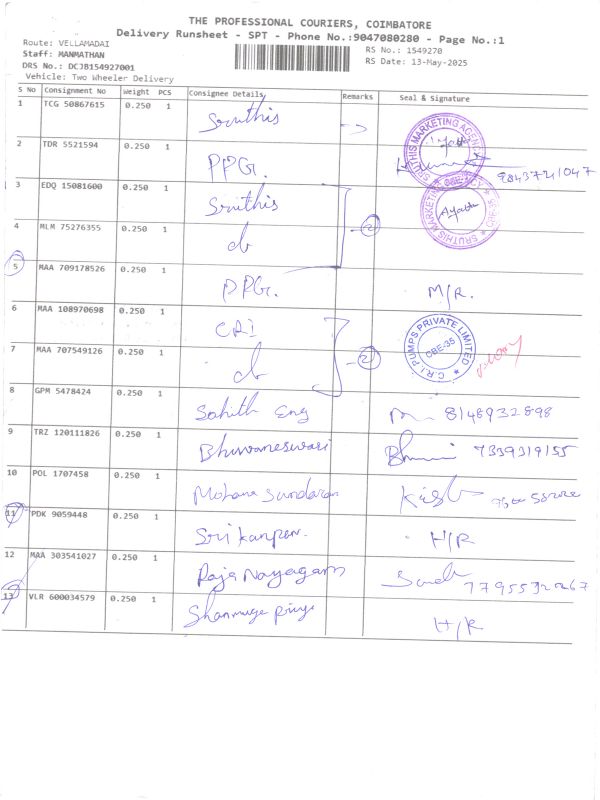 THE PROFESSIONAL COURIERS, COIMBATORE
Delivery Runsheet - SPT - Phone No.:9047080280 - Page No.:1
Route: VELLAMADAI
Staff: MANMATHAN
DRS No.: DCJB154927001
Vehicle: Two Wheeler Delivery
RS No.: 1549270
RS Date: 13-May-2025
S No Consignment No Weight PCS Consignee Details Remarks Seal & Signature
1 TCG 50867615 0.250 1 Sruthis
SRUTHIS MARKETING AGENCY
2 TDR 5521594 0.250 1 PPG. 9843721047
3 EDQ 15081600 0.250 1 Sruthis
SRUTHIS MARKETING AGENCY
4 MLM 75276355 0.250 1 do 2
5 MAA 709178526 0.250 1 PPG. M/R.
6 MAA 108970698 0.250 1 CRI
C.R.I. PUMPS PRIVATE LIMITED
CBE-35
7 MAA 707549126 0.250 1 do 2
8 GPM 5478424 0.250 1 Sahith Eng 8148932898
9 TRZ 120111826 0.250 1 Bhuvaneswari 7339319155
10 POL 1707458 0.250 1 Mohana Sundaram
11 PDK 9059448 0.250 1 H/R
12 MAA 303541027 0.250 1 Raja Nayagam
13 VLR 600034579 0.250 1 Shanmuga priya H/R